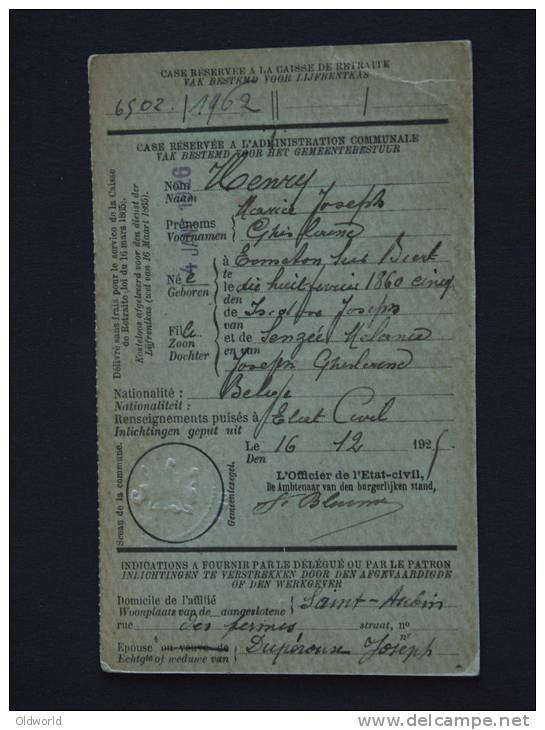 CASE RÉSERVÉE A LA CAISSE DE RETRAITE
VAK BESTEMD VOOR LIJFRENTKAS
6502. 1962
CASE RÉSERVÉE A L'ADMINISTRATION COMMUNALE
VAK BESTEMD VOOR HET GEMEENTEBESTUUR
Délivré sans frais pour le service de la Caisse
de Retraite (loi du 16 mars 1865).
Kosteloos afgeleverd voor den dienst der
Lijfrentkas (wet van 16 Maart 1865).
Nom Henry
Naam
Joseph
Prénoms
Voornamen Ghislaine
4 JAN
à sur
Né e te
Geboren le dix huit février 1860 cinq
den
de Joseph
Fille van
Zoon et de
Dochter en van
Joseph Ghislaine
Nationalité : Belge
Nationaliteit :
Renseignements puisés à Etat Civil
Inlichtingen geput uit
Le 16 12 192
Den
Sceau de la commune.
Gemeentezegel.
L'Officier de l'Etat-civil,
De Ambtenaar van den burgerlijken stand,
INDICATIONS A FOURNIR PAR LE DÉLÉGUÉ OU PAR LE PATRON
INLICHTINGEN TE VERSTREKKEN DOOR DEN AFGEVAARDIGDE
OF DEN WERKGEVER
Domicile de l'affilié Saint-Aubin
Woonplaats van de aangeslotene
rue des fermes straat, n°
nr
Epouse ou veuve de Dupéroux Joseph
Echtgte of weduwe van
Oldworld
www.delcampe.net